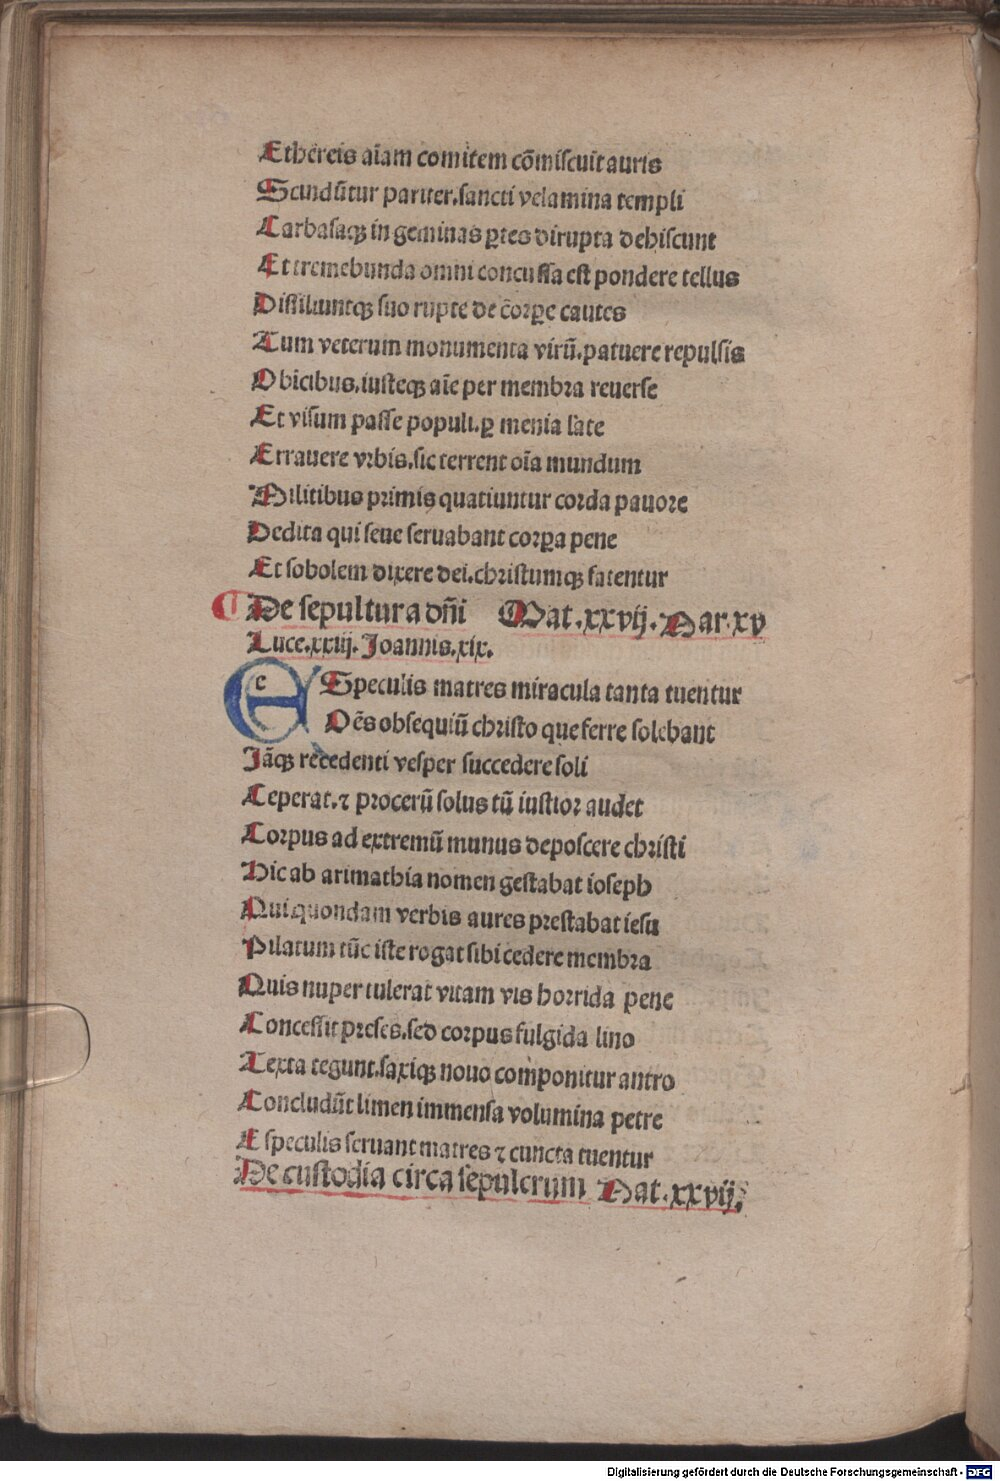 Ethereis aīam comitem cōmiſcuit auris
Scindūtur pariter.ſancti velamina templi
Carbaſaqꝫ in geminas ꝑtes dirupta dehiſcunt
Et tremebunda omni concuſſa eſt pondere tellus
Diſſiliuntqꝫ ſuo rupte de corꝑe cautes
Tum veterum monumenta virū.patuere repulſis
Obicibus.iuſteqꝫ aīe per membra reuerſe
Et viſum paſſe populi.ꝑ menia late
Errauere vrbis.ſic terrent oīa mundum
Militibus primis quatiuntur corda pauore
Dedita qui ſeue ſeruabant corꝑa pene
Et ſobolem dixere dei.chriſtumqꝫ fatentur
¶ De ſepultura dñi Mat.xxvij.Mar.xv
Luce.xxiij.Joannis.xix.
e Speculis matres miracula tanta tuentur
Oēs obſequiū chriſto que ferre ſolebant
Jāqꝫ recedenti veſper ſuccedere ſoli
Ceperat.⁊ procerū ſolus tū iuſtior audet
Corpus ad extremū munus depoſcere chriſti
Hic ab arimathia nomen geſtabat ioſeph
Qui quondam verbis aures preſtabat ieſu
Pilatum tūc iſte rogat ſibi cedere membra
Quis nuper tulerat vitam vis horrida pene
Conceſſit preſes.ſed corpus fulgida lino
Texta tegunt.ſaxiqꝫ nouo componitur antro
Concludūt limen immenſa volumina petre
E ſpeculis ſeruant matres ⁊ cuncta tuentur
De cuſtodia circa ſepulcrum Mat.xxvij.
Digitalisierung gefördert durch die Deutsche Forschungsgemeinschaft - DFG